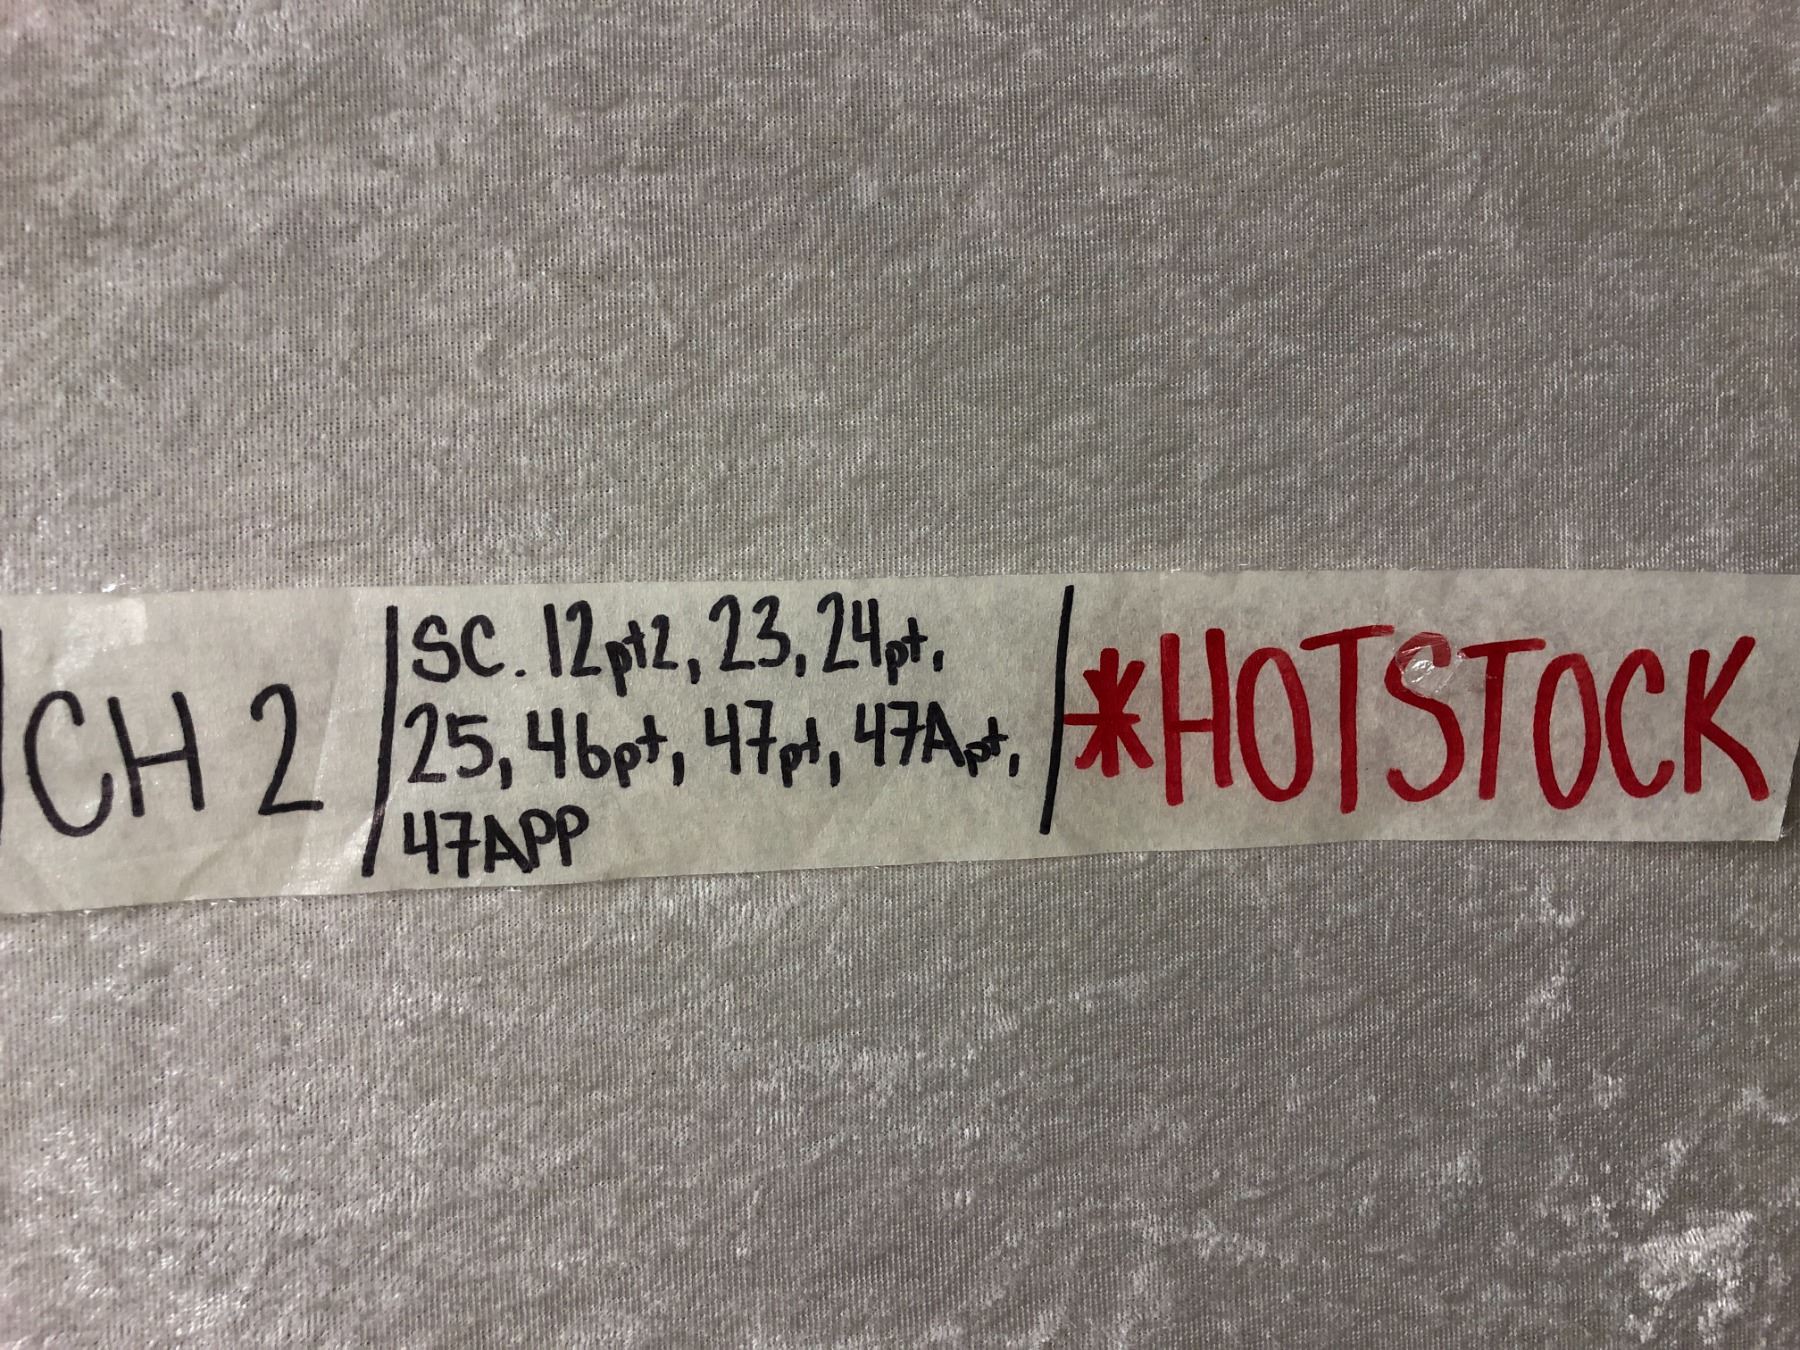 CH 2 / SC. 12pt2, 23, 24pt,
25, 46pt, 47pt, 47Apt,
47APP
/ *HOTSTOCK